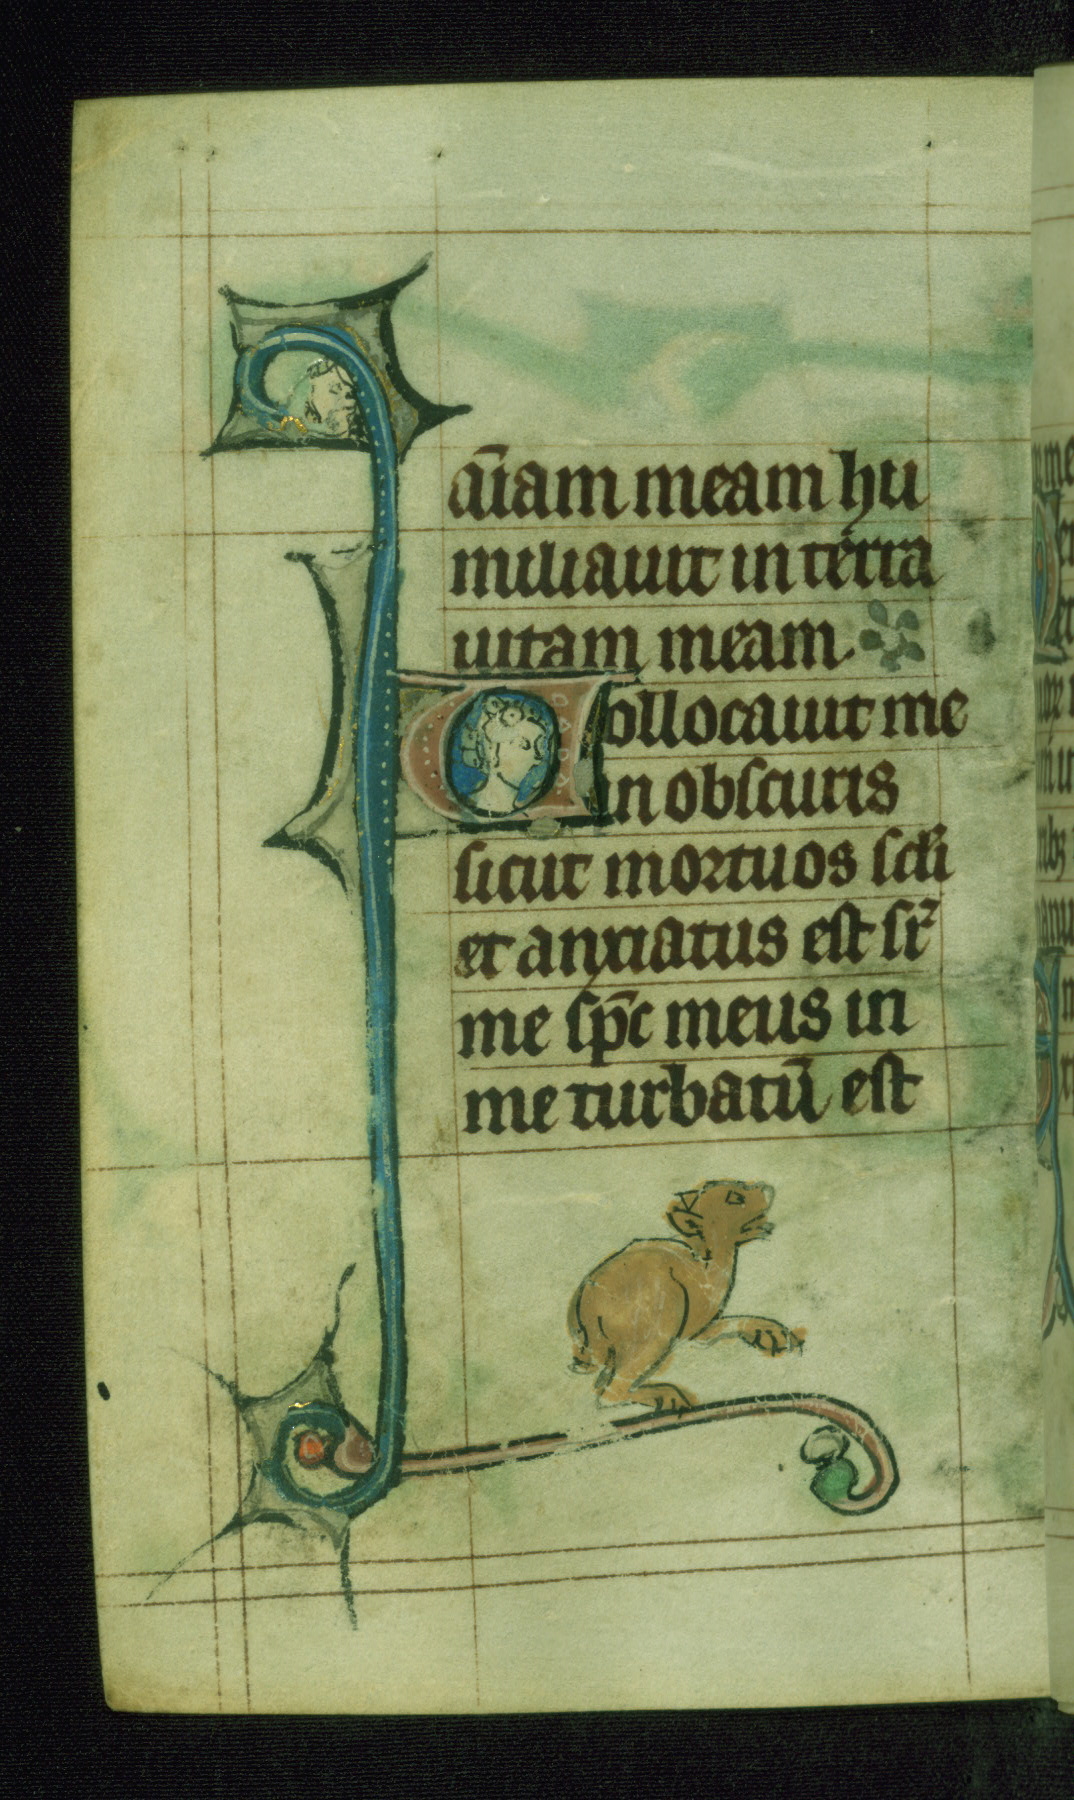 aīam meam hu
miliauit in terra
uitam meam.
Collocauit me
in obscuris
sicut mortuos scl̄i
et anxiatus est sr̄
me sp̄c meus in
me turbatū est